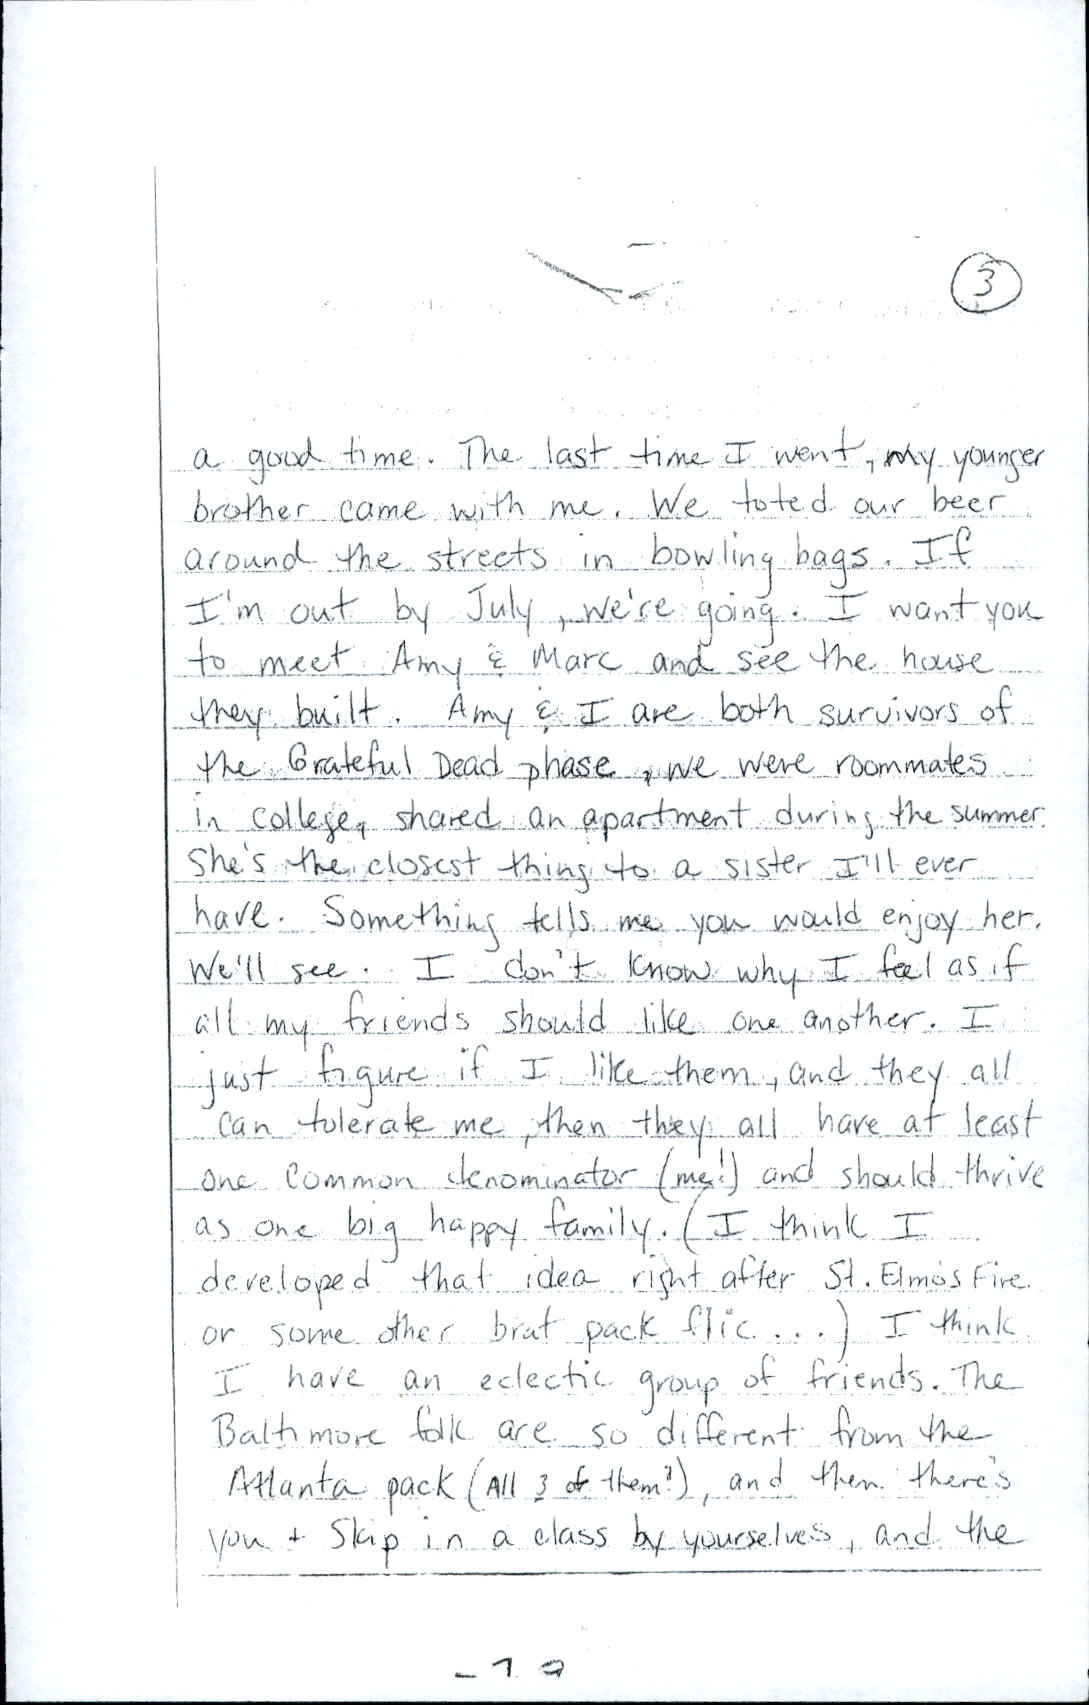 3
a good time. The last time I went, my younger
brother came with me. We toted our beer
around the streets in bowling bags. If
I'm out by July, we're going. I want you
to meet Amy & Marc and see the house
they built. Amy & I are both survivors of
the Grateful Dead phase, we were roommates
in college, shared an apartment during the summer.
She's the closest thing to a sister I'll ever
have. Something tells me you would enjoy her.
We'll see. I don't know why I feel as if
all my friends should like one another. I
just figure if I like them, and they all
can tolerate me, then they all have at least
one common denominator (me!) and should thrive
as one big happy family. (I think I
developed that idea right after St. Elmo's Fire
or some other brat pack flic...) I think
I have an eclectic group of friends. The
Baltimore folk are so different from the
Atlanta pack (All 3 of them!), and then there's
you + Skip in a class by yourselves, and the